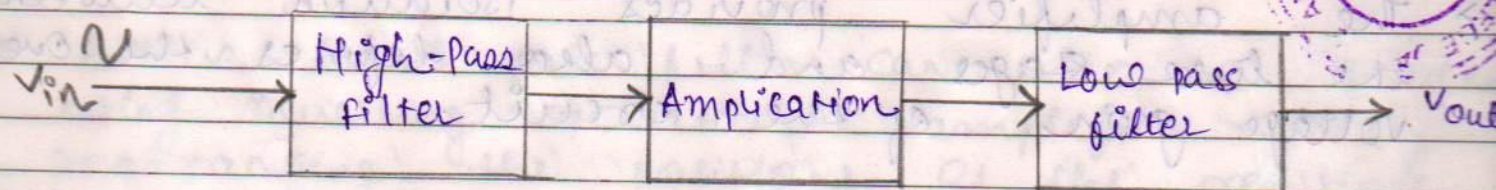 Vin
High-Pass
filter
Amplication
Low pass
filter
Vout